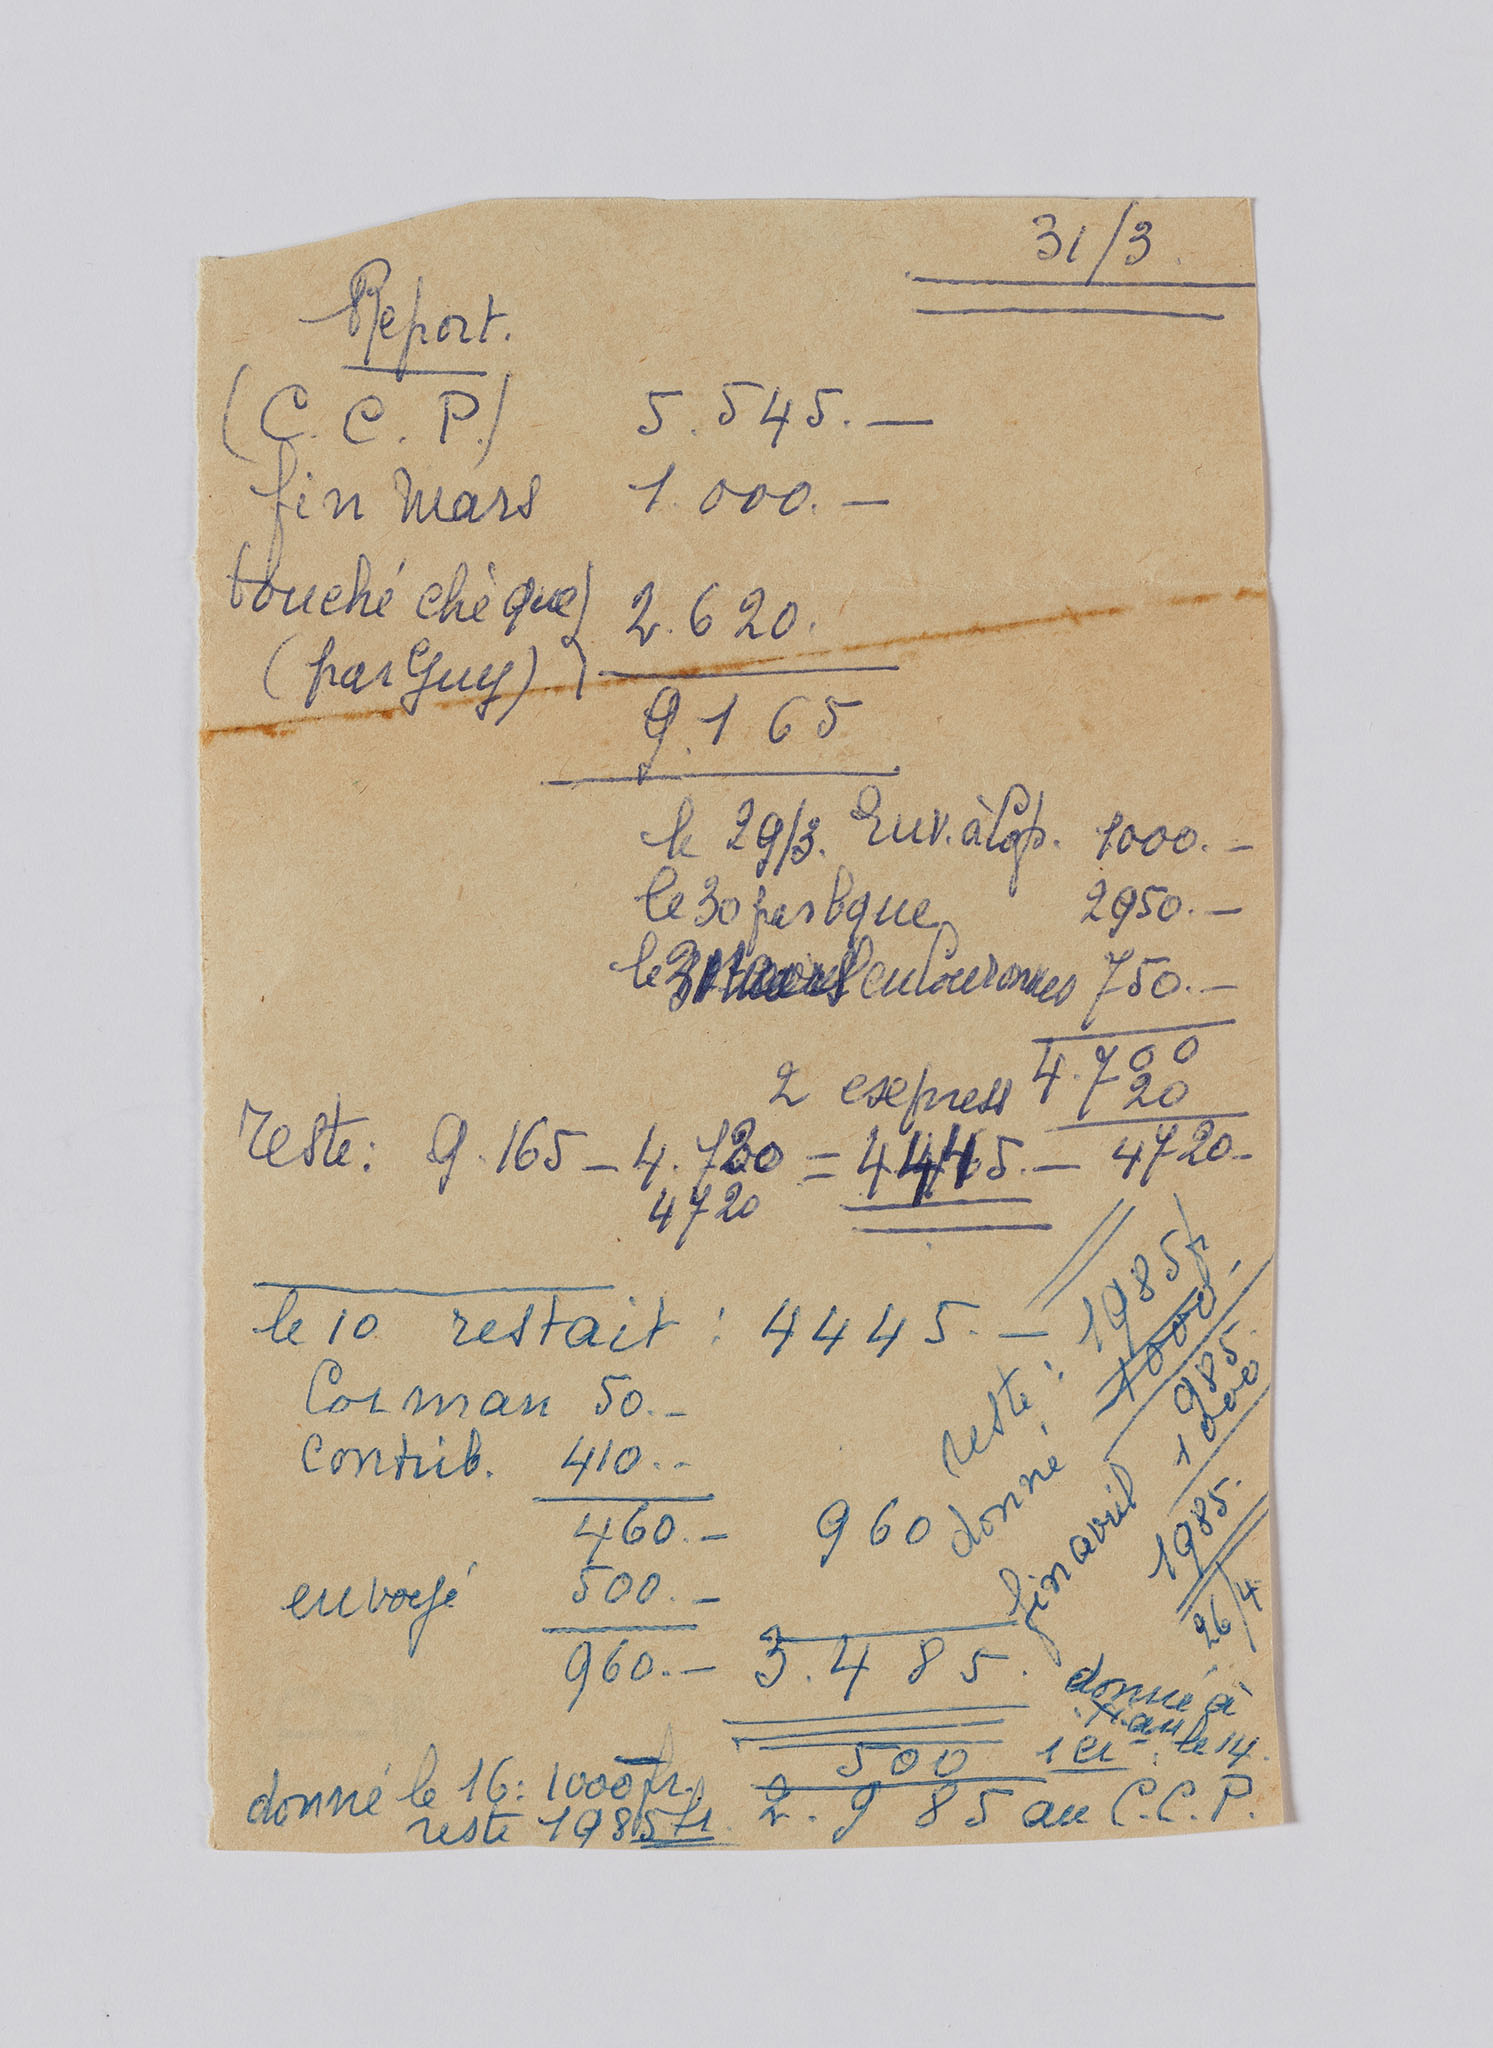 31/3.
Report.
(C. C. P.) 5.545.—
fin mars 1.000.—
touché chèque) 2.620.
(par Guy) )
9.165
le 29/3. Env. à 1000.—
le 30 par bque 2950.—
le 31 en Couronnes 750.—
4.700
2 express 20
4720.—
reste: 9.165 — 4.720 = 4445.—
4720
le 10 restait : 4445.—
Corman 50.—
Contrib. 410.—
460.— 960
envoyé 500.—
960.— 3.485.
500
donné à
le 14.
2.985 au C.C.P.
donné le 16: 1000 fr.
reste 1985 fr.
reste: 1985 fr
donné 1000.—
985.
fin avril 1000
1985.
26/4